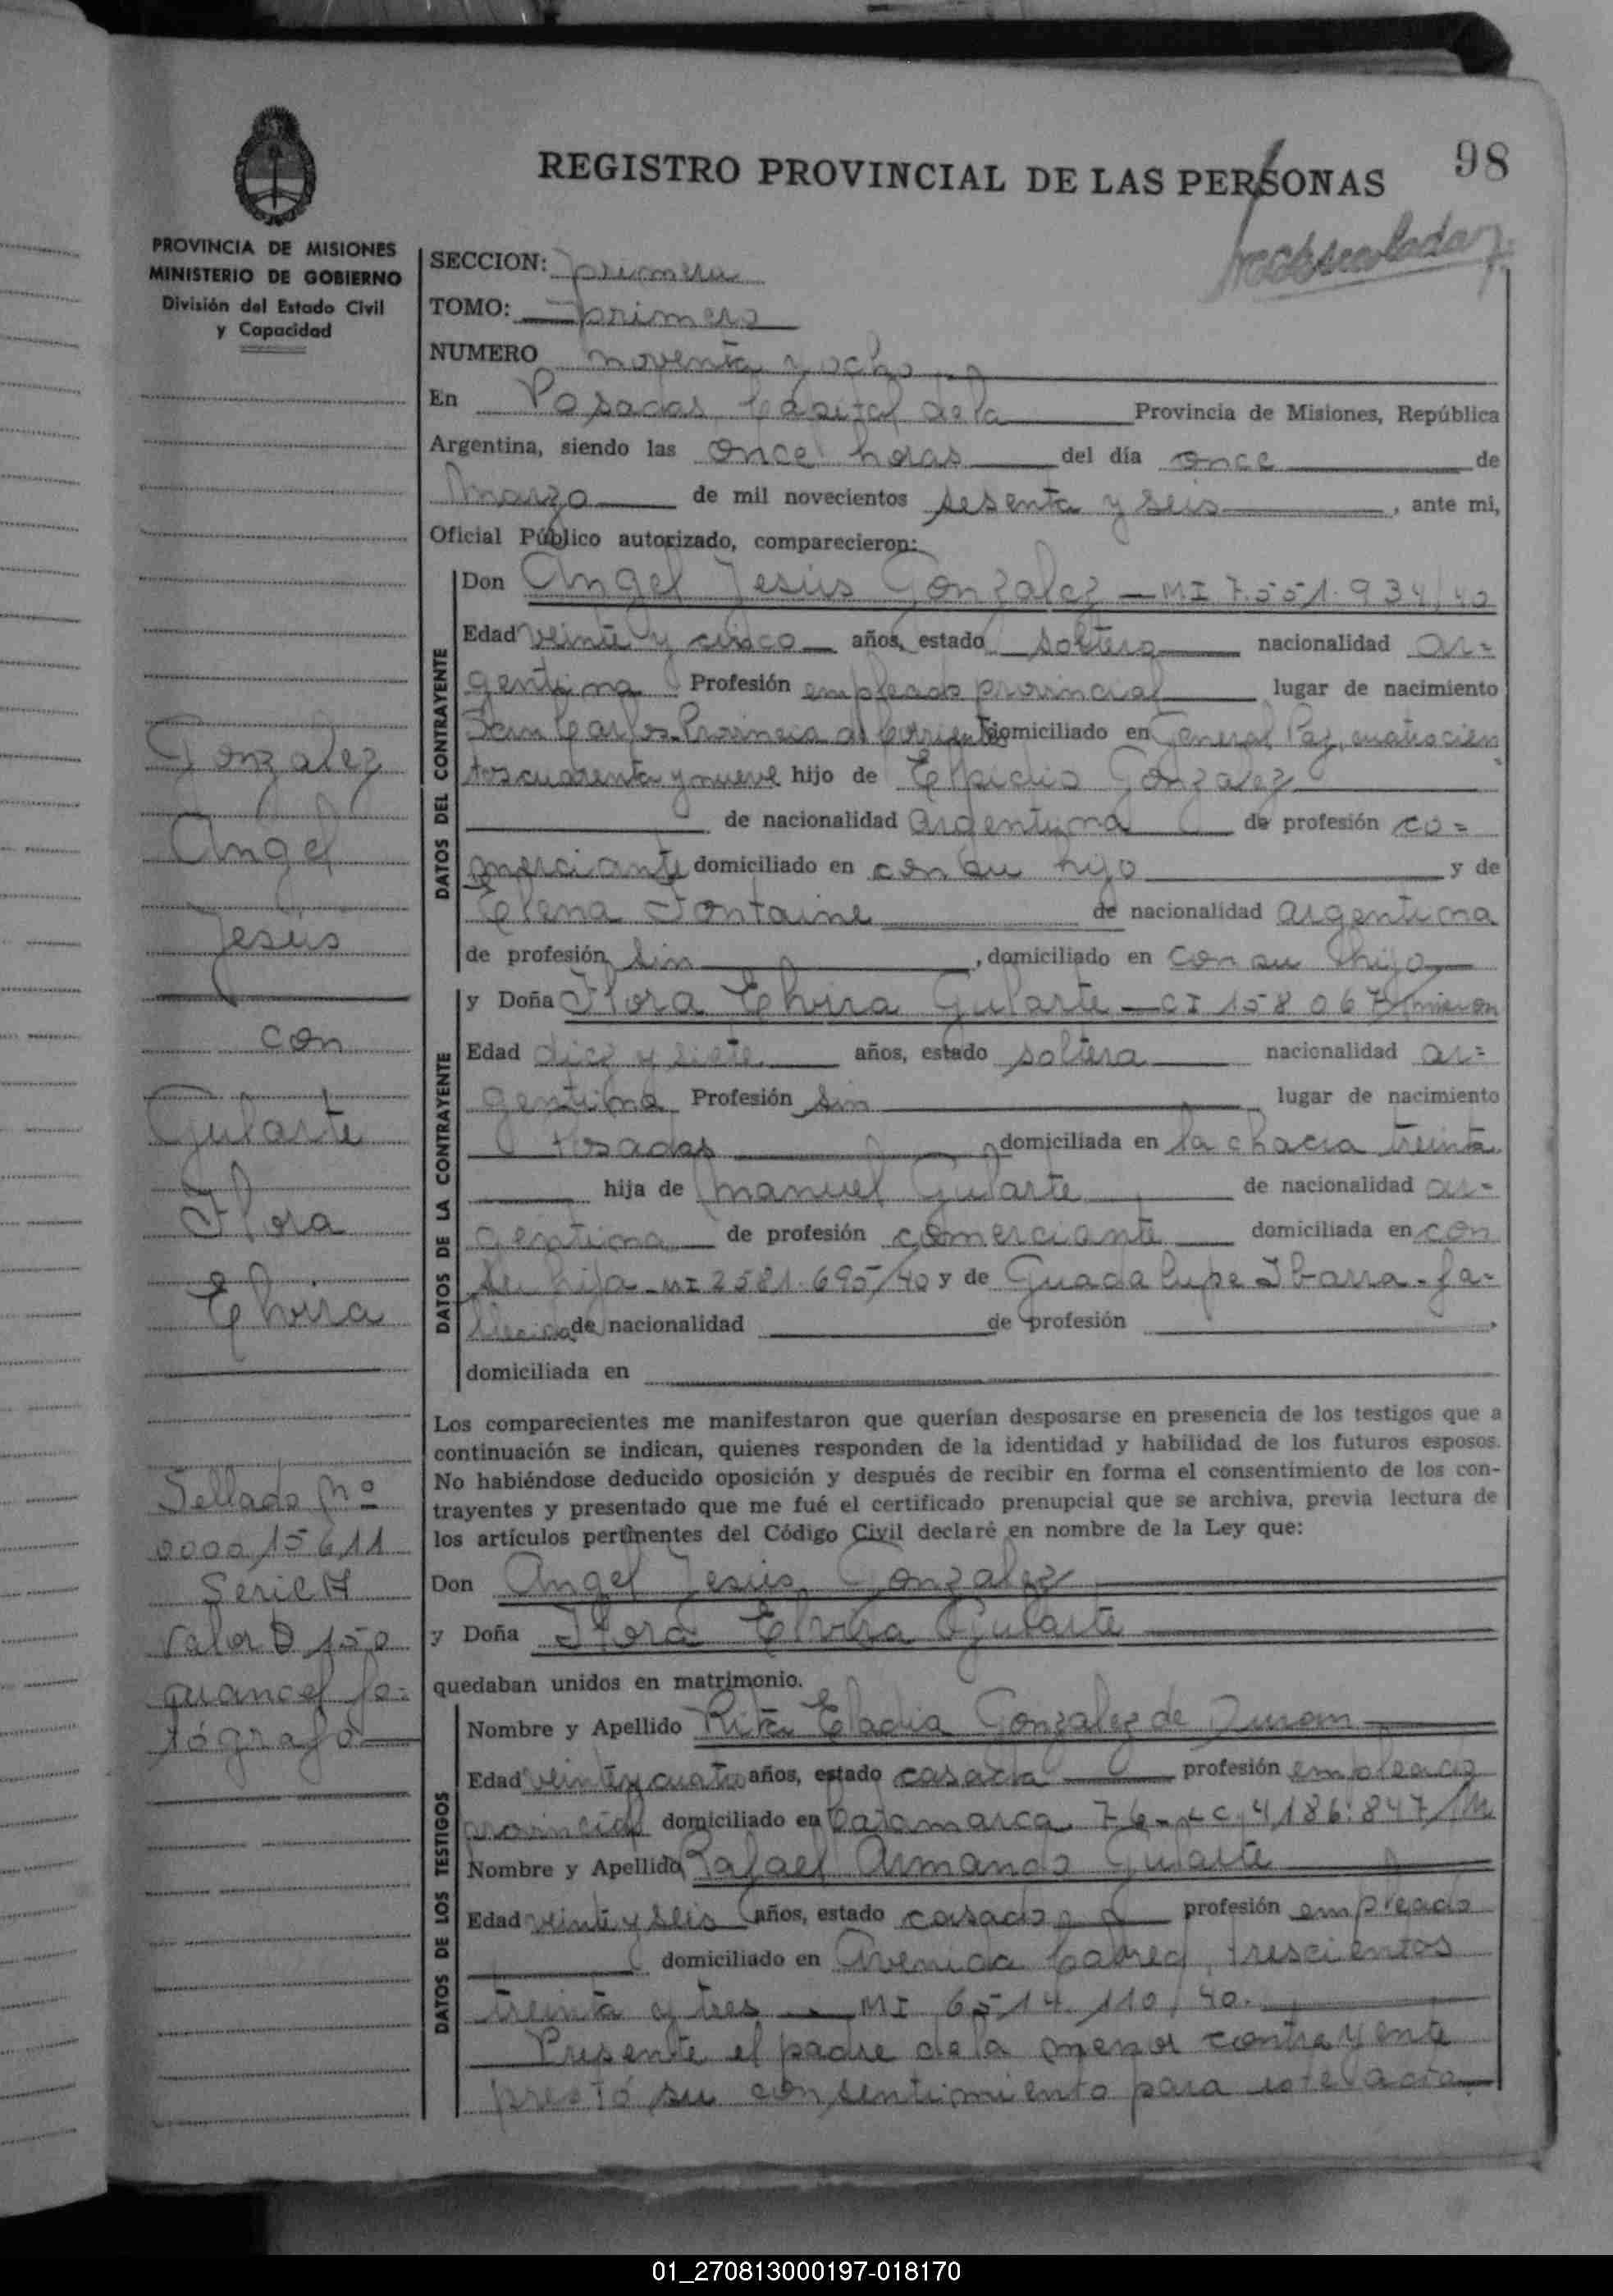 REGISTRO PROVINCIAL DE LAS PERSONAS
98
PROVINCIA DE MISIONES
MINISTERIO DE GOBIERNO
División del Estado Civil
y Capacidad
SECCION: primera
TOMO: primero
NUMERO noventa y ocho
En Posadas Capital de la Provincia de Misiones, República
Argentina, siendo las once horas del día once de
Marzo de mil novecientos sesenta y seis, ante mi,
Oficial Público autorizado, comparecieron:
DATOS DEL CONTRAYENTE
Don Angel Jesús Gonzalez - MI 7.551.934/40
Edad veinte y cinco años, estado soltero nacionalidad ar=
gentina Profesión empleado provincial lugar de nacimiento
San Carlos Provincia de Corrientes domiciliado en General Paz, cuatrocien
tos cuarenta y nueve hijo de Elpidio Gonzalez
de nacionalidad argentina de profesión co=
merciante domiciliado en con su hijo y de
Elena Fontaine de nacionalidad argentina
de profesión sin, domiciliado en con su hijo
DATOS DE LA CONTRAYENTE
y Doña Flora Elvira Gularte - CI 158067
Edad diez y siete años, estado soltera nacionalidad ar=
gentina Profesión sin lugar de nacimiento
Posadas domiciliada en la chacra treinta
hija de Manuel Gularte de nacionalidad ar=
gentina de profesión comerciante domiciliada en con
su hija - MI 2581.695/40 y de Guadalupe Ibarra - fa=
llecida de nacionalidad de profesión
domiciliada en
Los comparecientes me manifestaron que querían desposarse en presencia de los testigos que a
continuación se indican, quienes responden de la identidad y habilidad de los futuros esposos.
No habiéndose deducido oposición y después de recibir en forma el consentimiento de los con-
trayentes y presentado que me fué el certificado prenupcial que se archiva, previa lectura de
los artículos pertinentes del Código Civil declaré en nombre de la Ley que:
Don Angel Jesús Gonzalez
y Doña Flora Elvira Gularte
quedaban unidos en matrimonio.
DATOS DE LOS TESTIGOS
Nombre y Apellido Rita Eladia Gonzalez de Duran
Edad veinte y cuatro años, estado casada profesión empleada
provincial domiciliado en Catamarca 76 - LC 4186.847/M
Nombre y Apellido Rafael Armando Gularte
Edad veinte y seis años, estado casado profesión empleado
domiciliado en Avenida Cabred, trescientos
treinta y tres - MI 6514.110/40.
Presente el padre de la menor contrayente
prestó su consentimiento para este acto
Gonzalez
Angel
Jesús
con
Gularte
Flora
Elvira
Sellado Nº
000015611
Serie A
Valor $ 150
arancel fo=
tógrafo
01_270813000197-018170